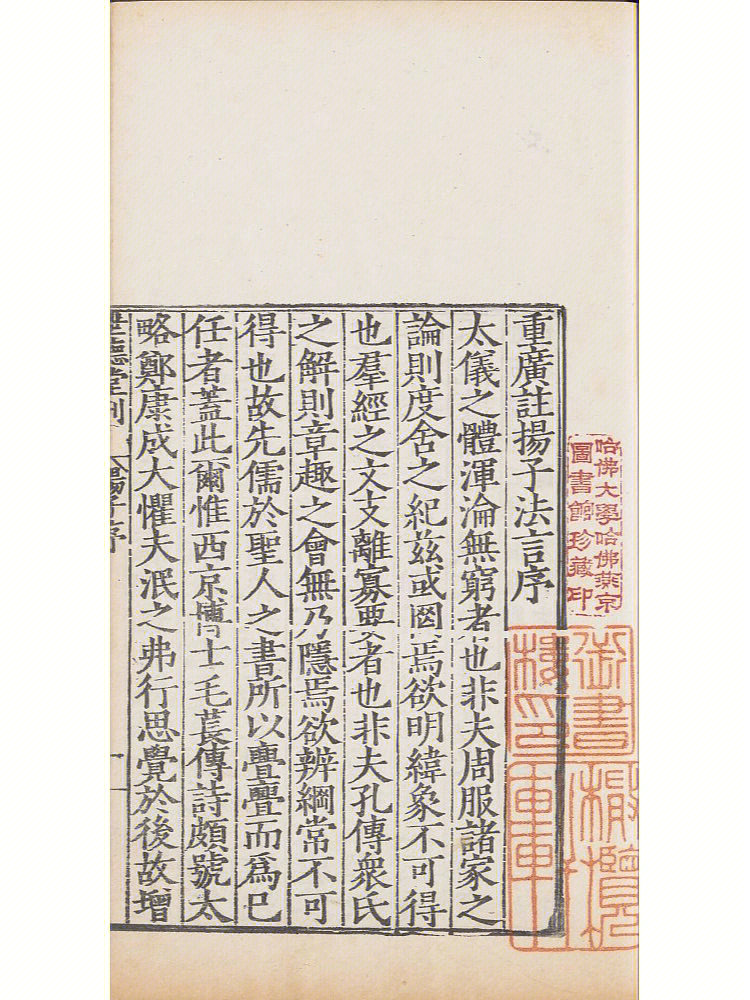 重廣註揚子法言序
太儀之體渾淪無窮者也非夫周服諸家之
論則度舍之紀茲或罔焉欲明緯象不可得
也羣經之文支離寡要者也非夫孔傳衆氏
之解則章趣之會無乃隱焉欲辨綱常不可
得也故先儒於聖人之書所以亹亹而爲已
任者蓋此爾惟西京博士毛萇傳詩頗號太
略鄭康成大懼夫泯之弗行思覺於後故增
世德堂刊
揚子序
一
哈佛大學哈佛燕京
圖書館珍藏印
御書
樓印